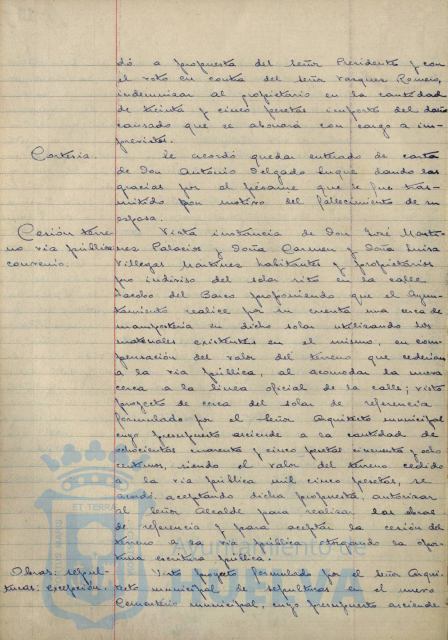 dó a propuesta del señor Presidente y con
el voto en contra del señor Vazquez Romero,
indemnizar al propietario en la cantidad
de treinta y cinco pesetas importe del daño
causado que se abonará con cargo a im-
previstos.
Cortesia.
Se acordó quedar enterado de carta
de Don Antonio Delgado Luque dando las
gracias por el pésame que le fue tras-
mitido con motivo del fallecimiento de su
esposa.
Cesión terre-
no via pública
convenio.
Vista instancia de Don José Martí-
nez Palacios y Doña Carmen y Doña Luisa
Villegas Martinez habitantes y propietarios
pro indiviso del solar sito en la calle
Jacobo del Barco proponiendo que el Ayun-
tamiento realice por su cuenta una cerca de
mamposteria en dicho solar utilizando los
materiales existentes en el mismo, en com-
pensación del valor del terreno que cederian
a la via pública, al acomodar la nueva
cerca a la linea oficial de la calle; visto
proyecto de cerca del solar de referencia
formulado por el Señor Arquitecto municipal
cuyo presupuesto asciende a la cantidad de
ochocientas cuarenta y cinco pesetas cincuenta y ocho
centimos, siendo el valor del terreno cedido
a la via pública mil cinco pesetas, se
acordó aceptando dicha propuesta, autorizar
al señor Alcalde para realizar las obras
de referencia y para aceptar la cesión del
terreno a la via pública otorgando la opor-
tuna escritura pública.
Obras: sepul-
turas: excepción.
Visto proyecto formulado por el señor Arqui-
tecto municipal de sepulturas en el nuevo
Cementerio municipal, cuyo presupuesto asciende